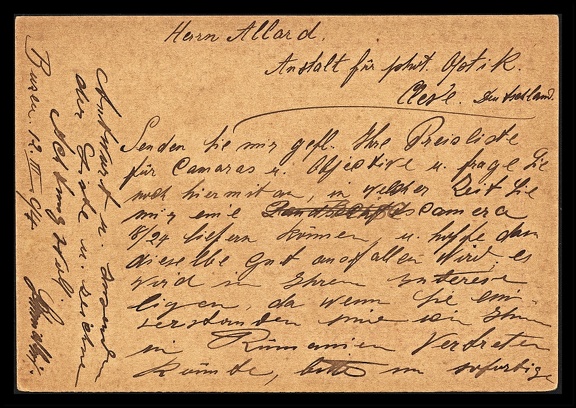 Herrn Allard.
Anstalt für phot. Optik.
Cleve. Deutschland.
Senden Sie mir gefl. Ihre Preisliste
für Camaras u. Objective u. frage Sie
noch hiermit an, in welcher Zeit Sie
mir eine camera
18/24 liefern können u. hoffe dass
dieselbe gut ausfallen wird es
wird in Ihrem Interesse
liegen, da wenn Sie ein
verstanden sind ich Ihnen
in Rumänien Vertreten
könnte, bitte um sofortige
Antwort u. Zusenden
der Liste u. zeichne
Achtungsvoll.
Buzeu. 12. II 94